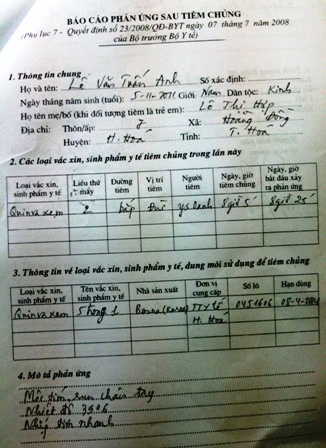 BÁO CÁO PHẢN ỨNG SAU TIÊM CHỦNG
(Phụ lục 7 - Quyết định số 23/2008/QĐ-BYT ngày 07 tháng 7 năm 2008
của Bộ trưởng Bộ Y tế)
1. Thông tin chung
Họ và tên: Lê Văn Tuấn Anh Số xác định:
Ngày tháng năm sinh (tuổi): 5-11-2011 Giới: Nam Dân tộc: Kinh
Họ tên mẹ/bố (khi đối tượng tiêm là trẻ em): Lê Thị Hợp
Địa chỉ: Thôn/ấp: 7 Xã: Hoằng Đông
Huyện: H. Hoá Tỉnh: T. Hoá
2. Các loại vắc xin, sinh phẩm y tế tiêm chủng trong lần này
Loại vắc xin, sinh phẩm y tế Liều thứ mấy Đường tiêm Vị trí tiêm Người tiêm Ngày, giờ tiêm chủng Ngày, giờ bắt đầu xảy ra phản ứng
Quinvaxem 2 bắp Đùi ys Oanh 8giờ 5 8giờ 25
3. Thông tin về loại vắc xin, sinh phẩm y tế, dung môi sử dụng để tiêm chủng
Loại vắc xin, sinh phẩm y tế Tên vắc xin, sinh phẩm y tế Nhà sản xuất Đơn vị cung cấp Số lô Hạn dùng
Quinvaxem 5 trong 1 (Korea) TTytế H. Hoá 0451606
4. Mô tả phản ứng
chân tay
Nhiệt độ 39,6
Nhịp tim nhanh